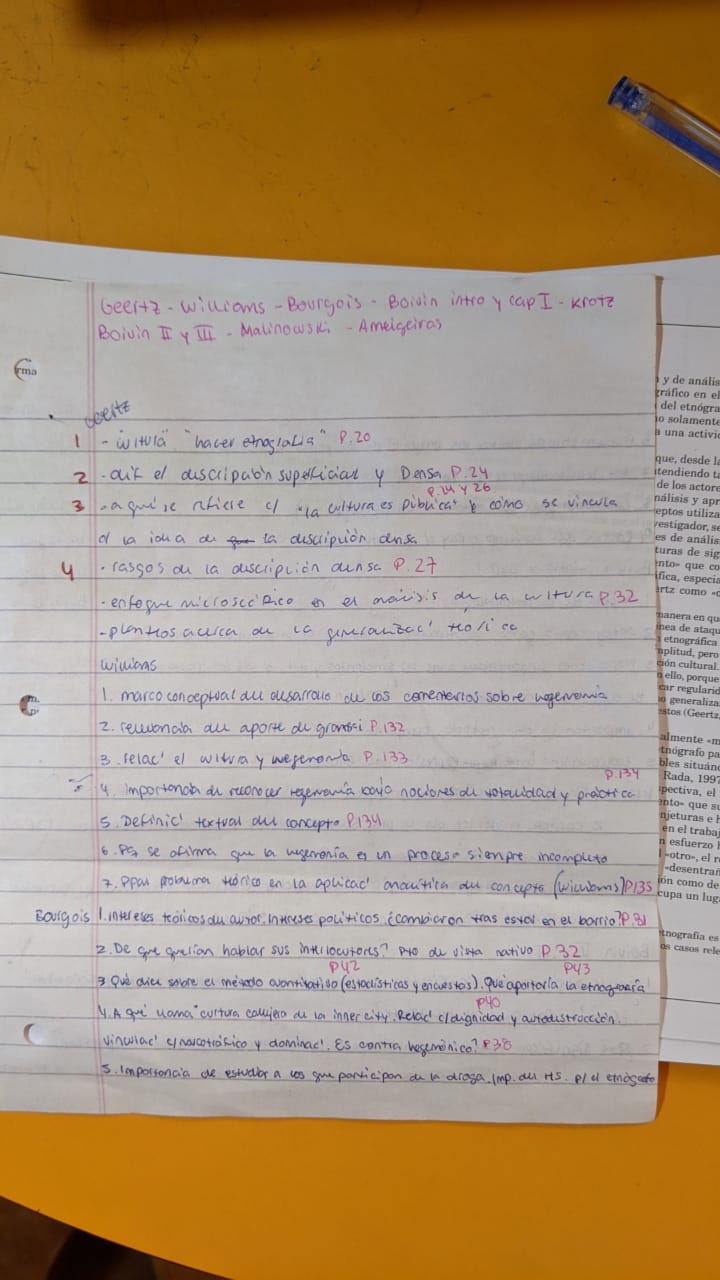 Geertz - Williams - Bourgois - Boivin intro y cap I - Krotz
Boivin II y III - Malinowski - Ameigeiras
rma
Geertz
1 - cultura "hacer etnografia" P.20
2 - dif e/ descripción superficial y Densa P.24
P.24 y 26
3 - a qué se refiere c/ "la cultura es pública" y cómo se vincula
a la idea de la descripción densa
4 - rasgos de la descripción densa P.27
- enfoque microscópico en el análisis de la cultura P.32
- planteos acerca de la generalizac' teórica
Williams
1. marco conceptual del desarrollo de los comentarios sobre hegemonía
2. relevancia del aporte de gramsci P.132
3. relac' e/ cultura y hegemonía P.133
P.134
4. Importancia de reconocer hegemonía bajo nociones de totalidad y práctica
5. Definic' textual del concepto P134
6. Pq se afirma que la hegemonía es un proceso siempre incompleto
7. Ppal problema teórico en la aplicac' analítica del concepto (Williams) P135
Bourgois 1. intereses teóricos del autor. Intreses políticos ¿cambiaron tras estar en el barrio? P.31
2. De qué querían hablar sus interlocutores? Pto de vista nativo P.32
P42 P43
3 Qué dice sobre el método cuantitativo (estadísticas y encuestas). Qué aportaría la etnografía
P40
4. A qué llama "cultura callejera de la inner city. Relac' c/ dignidad y autodestrucción.
Vinculac' c/ narcotráfico y dominac'. Es contra hegemónico? P38
5. Importancia de estudiar a los que participan de la droga. Imp. del HS. p/ el etnógrafo
y de anális
gráfico en el
del etnógra
o solamente
a una activic
que, desde la
tendiendo ta
de los actore
nálisis y apr
eptos utiliza
vestigador, se
es de anális
turas de sig
nto» que co
ífica, especia
ertz como «c
manera en qu
nea de ataqu
etnográfica
mplitud, pero
ción cultural.
ello, porque
car regularid
generaliza
estos (Geertz,
almente «m
tnógrafo pa
bles situánd
Rada, 1997
pectiva, el
ento» que su
njeturas e h
en el trabaj
esfuerzo h
«otro», el r
«desentrañ
ión como de
cupa un luga
tnografía es
os casos rele